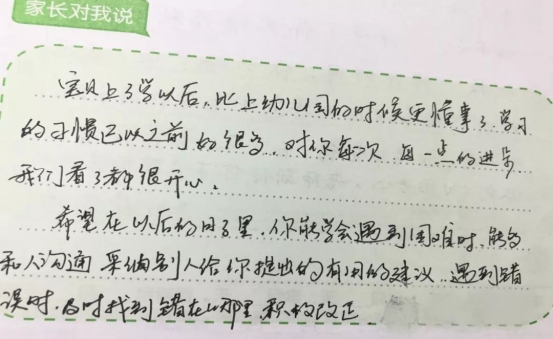 家长对我说
宝贝上了学以后,比上幼儿园的时候更懂事了学习
的习惯已以之前好很多,对你每次 每一点的进步
我们看了都很开心。
希望在以后的日子里,你能学会遇到困难时,能够
和人沟通 采纳别人给你提出的有用的建议,遇到错
误时,及时找到错在哪里,积极改正